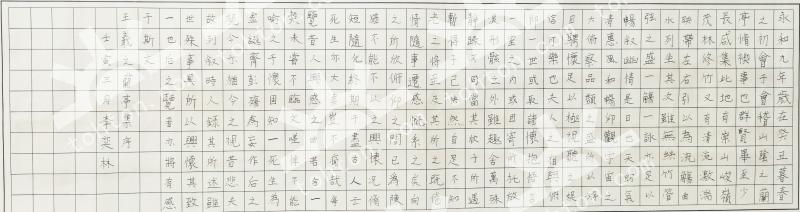 永和九年歲在癸丑暮春
之初會于會稽山陰之蘭
亭脩禊事也群賢畢至少
長咸集此地有崇山峻嶺
茂林修竹又有清流激湍
映帶左右引以為流觴曲
水列坐其次雖無絲竹管
弦之盛一觴一詠亦足以
暢叙幽情是日也天朗氣
清惠風和暢仰觀宇宙之
大俯察品類之盛所以遊
目騁懷足以極視聽之娛
信可樂也夫人之相與俯
仰一世或取諸懷抱悟言
一室之內或因寄所託放
浪形骸之外雖趣舍萬殊
靜躁不同當其欣於所遇
暫得于己快然自足不知
老之將至及其所之既倦
情隨事遷感慨係之矣向
之所欣俯仰之間已為陳
跡猶不能不以之興懷況
短隨化終期于盡古人云
死生亦大矣豈不痛哉每
覽昔人興感之由若合一
契未嘗不臨文嗟悼不能
喻之于懷固知一死生為
虛誕齊彭殤為妄作后之
視今亦猶今之視昔悲夫
故列叙時人錄其所述雖
世殊事異所以興懷其致
一也后之覽者亦將有感
于斯文
王羲之蘭亭集序
壬寅三月李奕林